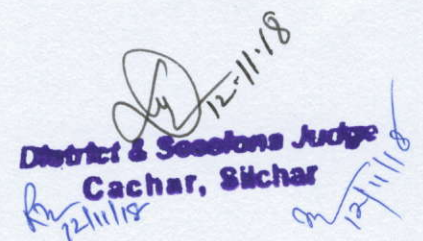 12-11-18
District & Sessions Judge
Cachar, Silchar
12/11/18
12/11/18